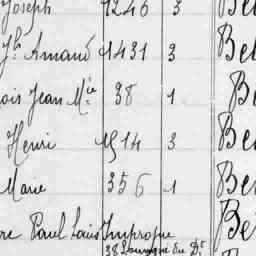 Joseph 1246 3 Be
Jh Amand 1431 3 Bel
ois Jean Mie 38 1 Be
Henri 1514 3 Be
Marie 356 1 Be
re Paul Louis Impropre Be
38 du Dr